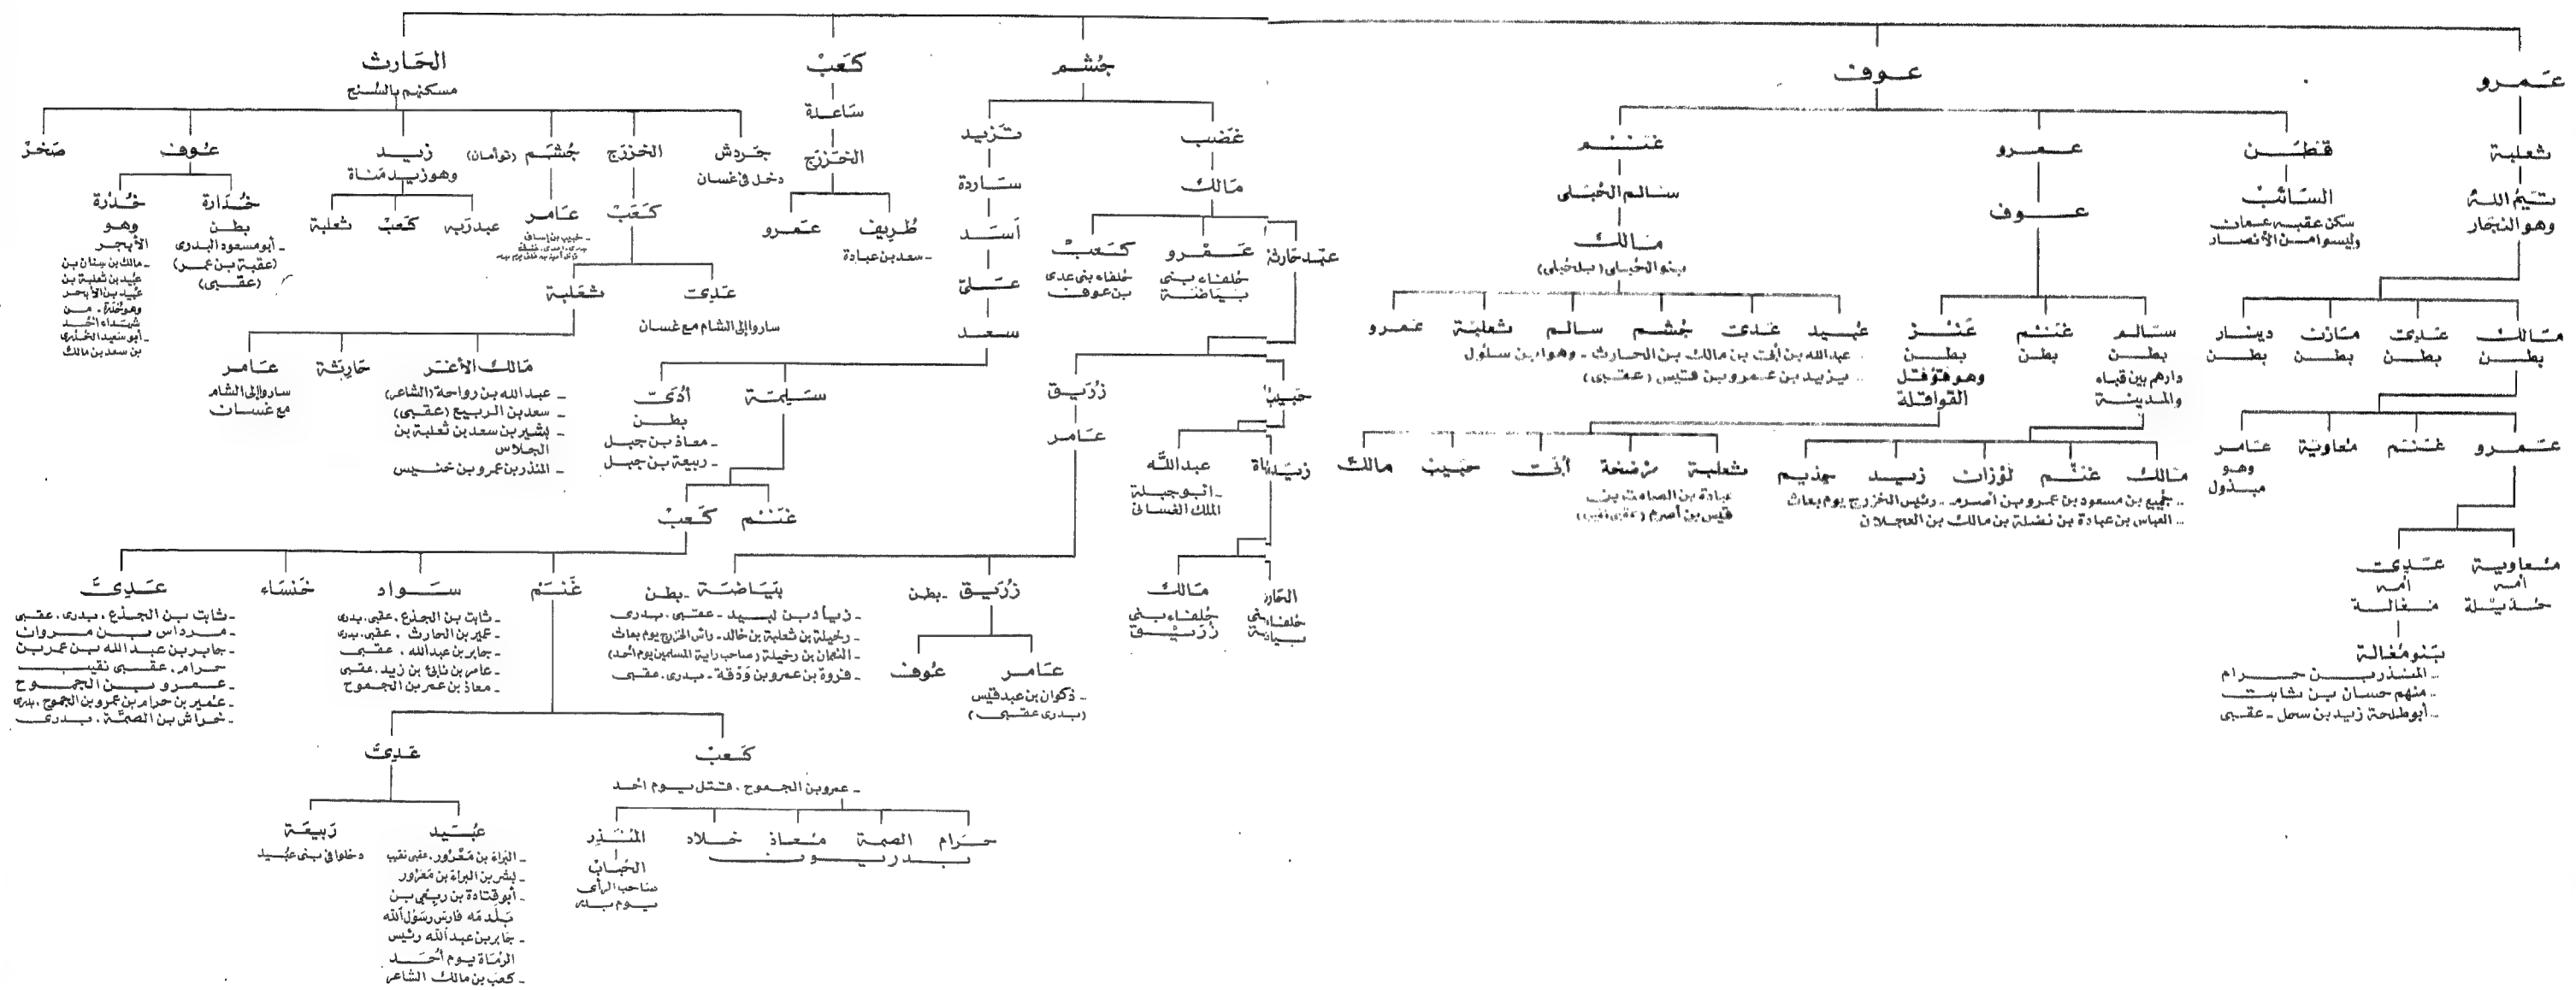 عمرو
عوف
جشم
كعب
الحارث
مسكنهم بالسنح
ثعلبة
تيم الله
وهو النجار
مالك
بطن
عدي
بطن
مازن
بطن
دينار
بطن
عمرو
غنم
معاوية
عامر
وهو
مبذول
معاوية
أمه
حديلة
عدي
أمه
مغالة
بنو مغالة
ـ المنذر بن حرام
ـ منهم حسان بن ثابت
ـ أبو طلحة زيد بن سهل ـ عقبى
قطن
السائب
سكن عقبه عمان
وليسوا من الأنصار
عمرو
عوف
سالم
بطن
دارهم بين قباء
والمدينة
غنم
بطن
عنز
بطن
وهو قوقل
القواقلة
مالك
غنم
لوزان
زيد
جذيم
ـ رئيس الخزرج يوم بعاث
ـ العباس بن عبادة بن نضلة بن مالك بن العجلان
ثعلبة
مرضخة
أبي
حبيب
مالك
عبادة بن الصامت بن
قيس بن أصرم
غنم
سالم الحبلى
مالك
بنو الحبلى (بلحبلى)
عبيد
عدي
جشم
سالم
ثعلبة
عمرو
عبد الله بن أبي بن مالك بن الحارث ـ وهو ابن سلول
يزيد بن عمرو بن قيس (عقبى)
غضب
مالك
عبد حارثة
عمرو
حلفاء بنى
بياضة
كعب
حلفاء بنى عدى
بن عوف
حبيب
زريق
عامر
عبد الله
ـ أبو جبيلة
الملك الغسانى
مالك
حلفاء بنى
زريق
زريق ـ بطن
عامر
ـ ذكوان بن عبد قيس
(بدرى عقبى)
عوف
بياضة ـ بطن
ـ زياد بن لبيد ـ عقبى، بدرى
ـ رخيلة بن ثعلبة بن خالد ـ رأس الخزرج يوم بعاث
ـ النعمان بن رخيلة (صاحب راية المسلمين يوم أحد)
ـ فروة بن عمرو بن وذقة ـ بدرى، عقبى
تزيد
ساردة
أسد
على
سعد
سلمة
أدي
بطن
ـ معاذ بن جبل
ـ ربيعة بن جبل
غنم
كعب
غنم
سواد
ـ ثابت بن الجذع، عقبى، بدرى
ـ عمير بن الحارث، عقبى، بدرى
ـ جابر بن عبد الله، عقبى
ـ عامر بن نابئ بن زيد، عقبى
ـ معاذ بن عمر بن الجموح
خنساء
عدي
ـ ثابت بن الجذع، بدرى، عقبى
ـ مرداس بن مروان
ـ جابر بن عبد الله بن عمر بن
حرام، عقبى نقيب
ـ عمرو بن الجموح
ـ عمير بن حرام بن عمرو بن الجموح، بدرى
ـ خراش بن الصمة، بدرى
كعب
ـ عمرو بن الجموح، قتل يوم احد
حرام
الصمة
معاذ
خلاد
بدريون
المنذر
الحباب
صاحب الرأى
يوم بدر
عدي
عبيد
ـ البراء بن معرور، عقبى نقيب
ـ بشر بن البراء بن معرور
ـ أبو قتادة بن ربعي بن
بلدمه فارس رسول الله
ـ جابر بن عبد الله رئيس
الرماة يوم أحد
ـ كعب بن مالك الشاعر
ربيعة
دخلوا فى بنى عبيد
ساعدة
الخزرج
طريف
ـ سعد بن عبادة
عمرو
جردش
دخل فى غسان
الخزرج
كعب
عدي
ساروا إلى الشام مع غسان
ثعلبة
مالك الأغر
ـ عبد الله بن رواحة (الشاعر)
ـ سعد بن الربيع (عقبى)
ـ بشير بن سعد بن ثعلبة بن
الجلاس
ـ المنذر بن عمرو بن خنيس
حارثة
عامر
ساروا إلى الشام
مع غسان
جشم (توأمان)
عامر
زيد
وهو زيد مناة
عبدربه
كعب
ثعلبة
عوف
خدارة
بطن
ـ أبو مسعود البدرى
(عقبة بن عمر)
(عقبى)
خدرة
وهو
الأبجر
ـ مالك بن سنان بن
عبيد بن ثعلبة بن
عبيد بن الأبجر
شهداء احد
ـ أبو سعيد الخدرى
بن سعد بن مالك
صخر